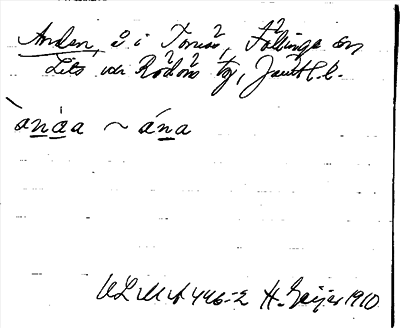 Anden, å i Torvalla, Föllinge sn
Lits och Rödöns tg, Jämtl. l.
ànda ~ ána
ULMA 446:2 H. Geijer 1910